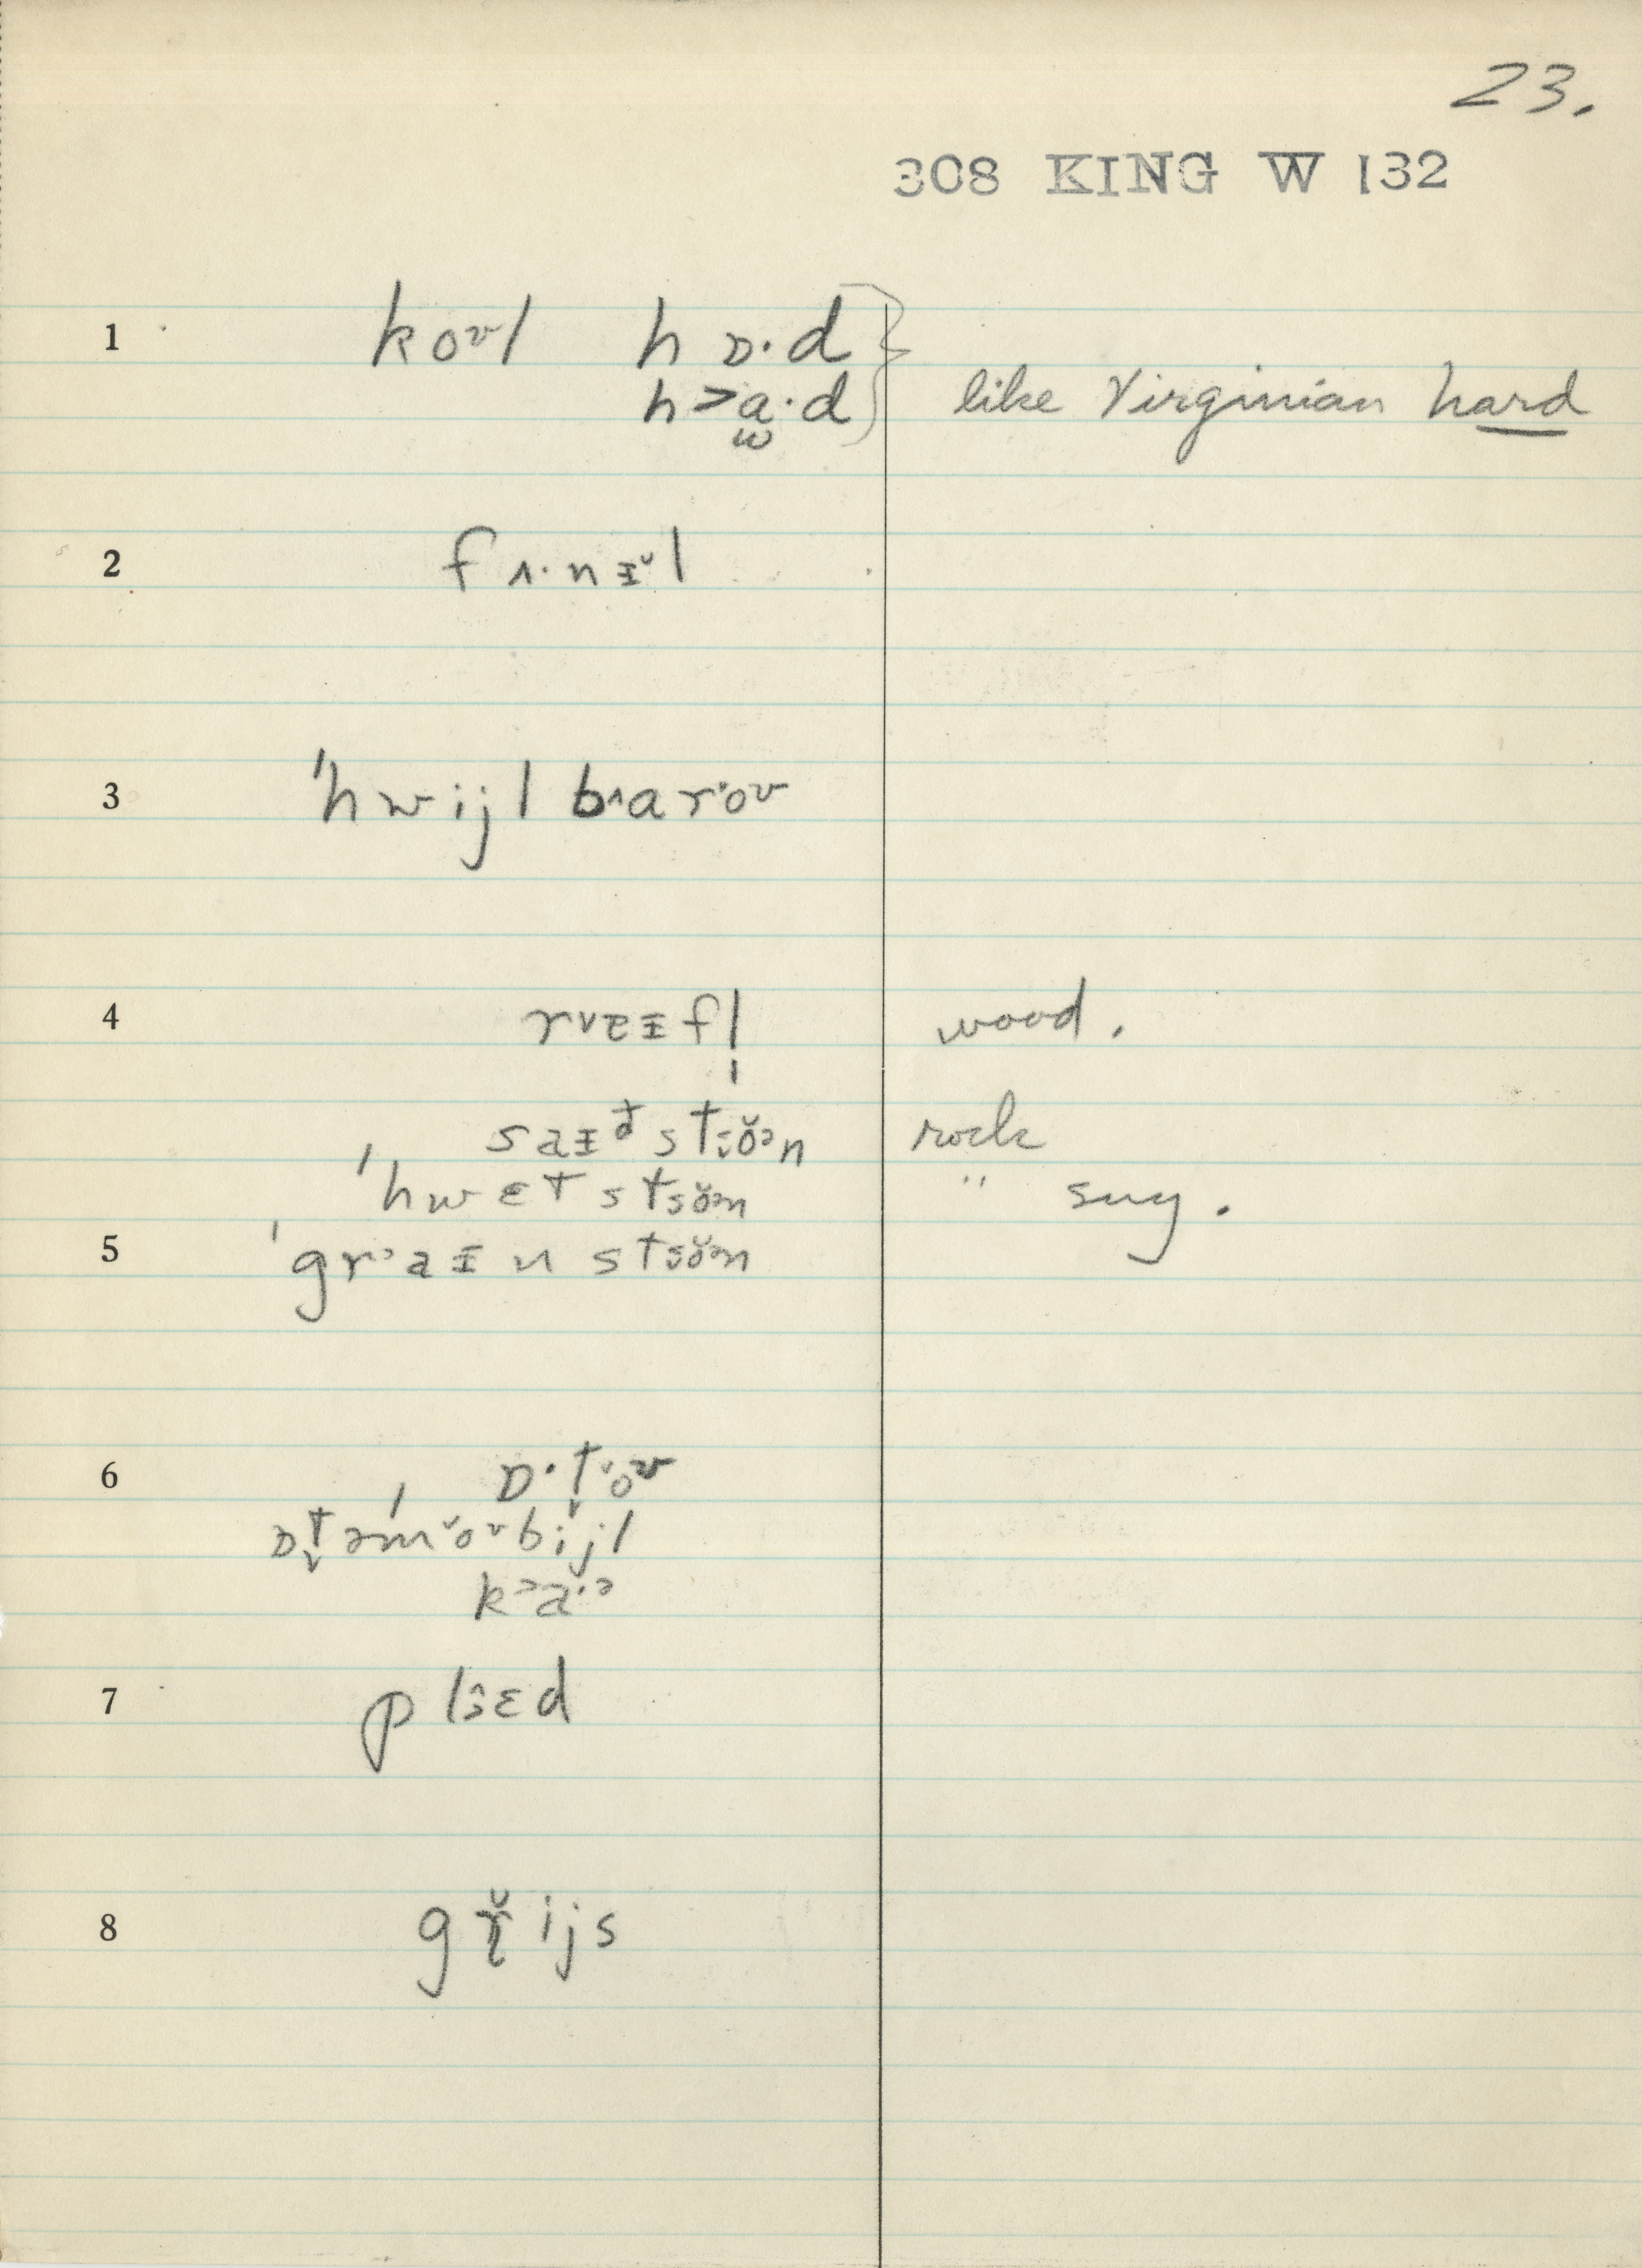 23.
308 KING W 132
1 koʊl hɒ·d
h>a̫·d like Virginian hard
2 fʌ·nɪ̵̆l
3 ˈhwijl bʌarˑoʊ
4 r˅eɪ̵fl̩ wood.
saɪ̵d stɜŏən rock
ˈhwɛt stɜŏən " sug.
5 ˈgr˃aɪ̵n stɜŏən
6 ɒ·t̬ˑoʊ
ɒt̬əmˈ˅oʊbijl
k˃a·ə
7 plɜɛd
8 gɹ̆ijs